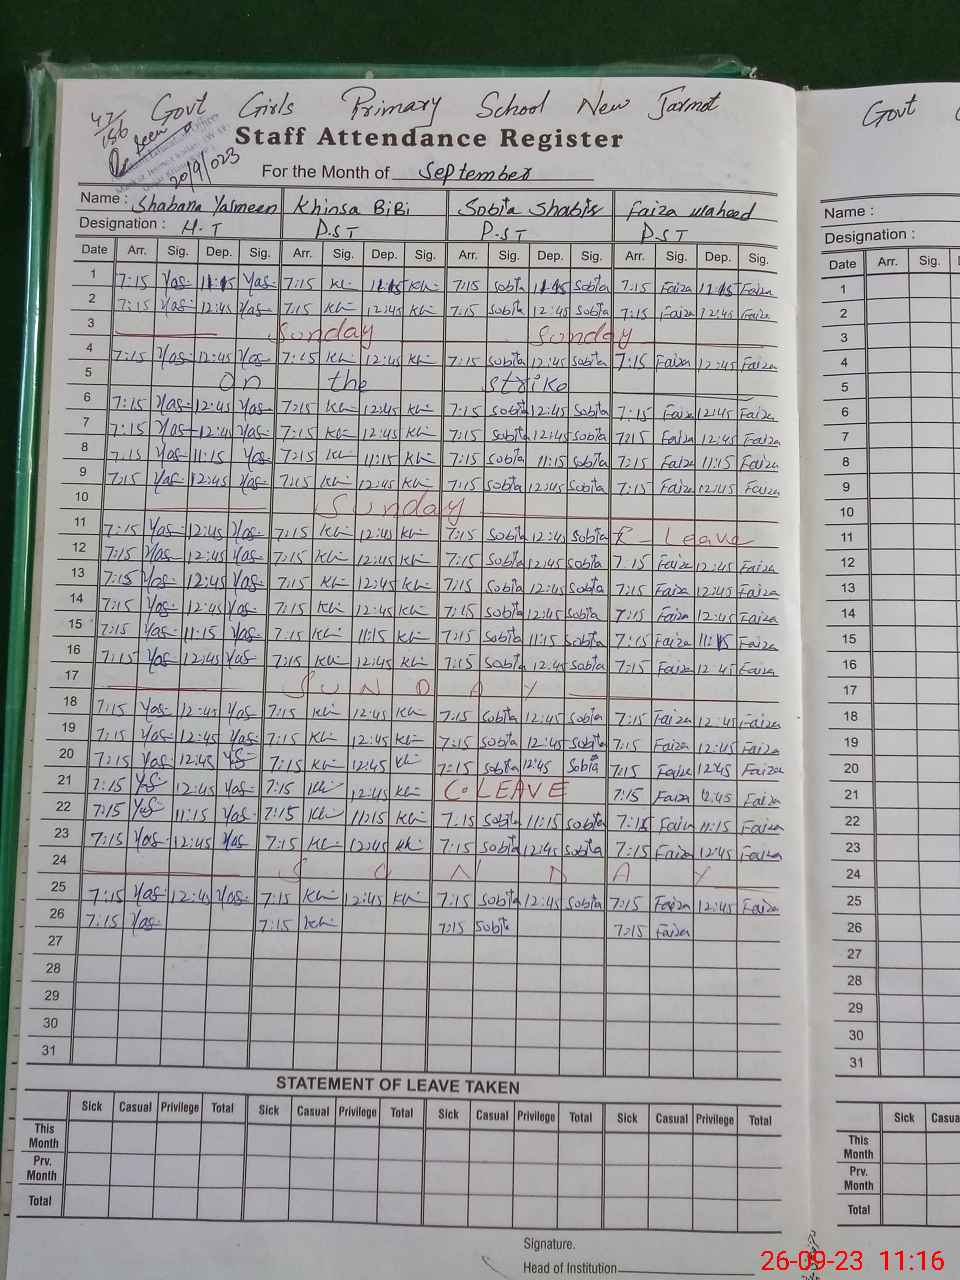 Govt Girls Primary School New Jarmot
47/186
Seen
20/9/023
Staff Attendance Register
For the Month of September
Name : Shabana Yasmeen Khinsa BiBi Sobita Shabir Faiza waheed
Designation : H.T P.S.T P.S.T P.S.T
Date Arr. Sig. Dep. Sig. Arr. Sig. Dep. Sig. Arr. Sig. Dep. Sig. Arr. Sig. Dep. Sig.
1 7:15 Yas 11:15 Yas 7:15 Kh 11:15 Kh 7:15 Sobita 11:15 Sobita 7:15 Faiza 11:15 Faiza
2 7:15 Yas 12:45 Yas 7:15 Kh 12:45 Kh 7:15 Sobita 12:45 Sobita 7:15 Faiza 12:45 Faiza
3 Sunday Sunday
4 7:15 Yas 12:45 Yas 7:15 Kh 12:45 Kh 7:15 Sobita 12:45 Sobita 7:15 Faiza 12:45 Faiza
5 on the strike
6 7:15 Yas 12:45 Yas 7:15 Kh 12:45 Kh 7:15 Sobita 12:45 Sobita 7:15 Faiza 12:45 Faiza
7 7:15 Yas 12:45 Yas 7:15 Kh 12:45 Kh 7:15 Sobita 12:45 Sobita 7:15 Faiza 12:45 Faiza
8 7:15 Yas 11:15 Yas 7:15 Kh 11:15 Kh 7:15 Sobita 11:15 Sobita 7:15 Faiza 11:15 Faiza
9 7:15 Yas 12:45 Yas 7:15 Kh 12:45 Kh 7:15 Sobita 12:45 Sobita 7:15 Faiza 12:45 Faiza
10 Sunday
11 7:15 Yas 12:45 Yas 7:15 Kh 12:45 Kh 7:15 Sobita 12:45 Sobita Leave
12 7:15 Yas 12:45 Yas 7:15 Kh 12:45 Kh 7:15 Sobita 12:45 Sobita 7:15 Faiza 12:45 Faiza
13 7:15 Yas 12:45 Yas 7:15 Kh 12:45 Kh 7:15 Sobita 12:45 Sobita 7:15 Faiza 12:45 Faiza
14 7:15 Yas 12:45 Yas 7:15 Kh 12:45 Kh 7:15 Sobita 12:45 Sobita 7:15 Faiza 12:45 Faiza
15 7:15 Yas 11:15 Yas 7:15 Kh 11:15 Kh 7:15 Sobita 11:15 Sobita 7:15 Faiza 11:15 Faiza
16 7:15 Yas 12:45 Yas 7:15 Kh 12:45 Kh 7:15 Sobita 12:45 Sobita 7:15 Faiza 12:45 Faiza
17 SUNDAY
18 7:15 Yas 12:45 Yas 7:15 Kh 12:45 Kh 7:15 Sobita 12:45 Sobita 7:15 Faiza 12:45 Faiza
19 7:15 Yas 12:45 Yas 7:15 Kh 12:45 Kh 7:15 Sobita 12:45 Sobita 7:15 Faiza 12:45 Faiza
20 7:15 Yas 12:45 Yas 7:15 Kh 12:45 Kh 7:15 Sobita 12:45 Sobita 7:15 Faiza 12:45 Faiza
21 7:15 Yas 12:45 Yas 7:15 Kh 12:45 Kh C. LEAVE 7:15 Faiza 12:45 Faiza
22 7:15 Yas 11:15 Yas 7:15 Kh 11:15 Kh 7:15 Sobita 11:15 Sobita 7:15 Faiza 11:15 Faiza
23 7:15 Yas 12:45 Yas 7:15 Kh 12:45 Kh 7:15 Sobita 12:45 Sobita 7:15 Faiza 12:45 Faiza
24 SUNDAY
25 7:15 Yas 12:45 Yas 7:15 Kh 12:45 Kh 7:15 Sobita 12:45 Sobita 7:15 Faiza 12:45 Faiza
26 7:15 Yas 7:15 Kh 7:15 Sobita 7:15 Faiza
27
28
29
30
31
STATEMENT OF LEAVE TAKEN
Sick Casual Privilege Total Sick Casual Privilege Total Sick Casual Privilege Total Sick Casual Privilege Total
This Month
Prv. Month
Total
Signature.
Head of Institution
Govt
Name :
Designation :
Date Arr. Sig.
1
2
3
4
5
6
7
8
9
10
11
12
13
14
15
16
17
18
19
20
21
22
23
24
25
26
27
28
29
30
31
Sick Casua
This Month
Prv. Month
Total
26-09-23 11:16